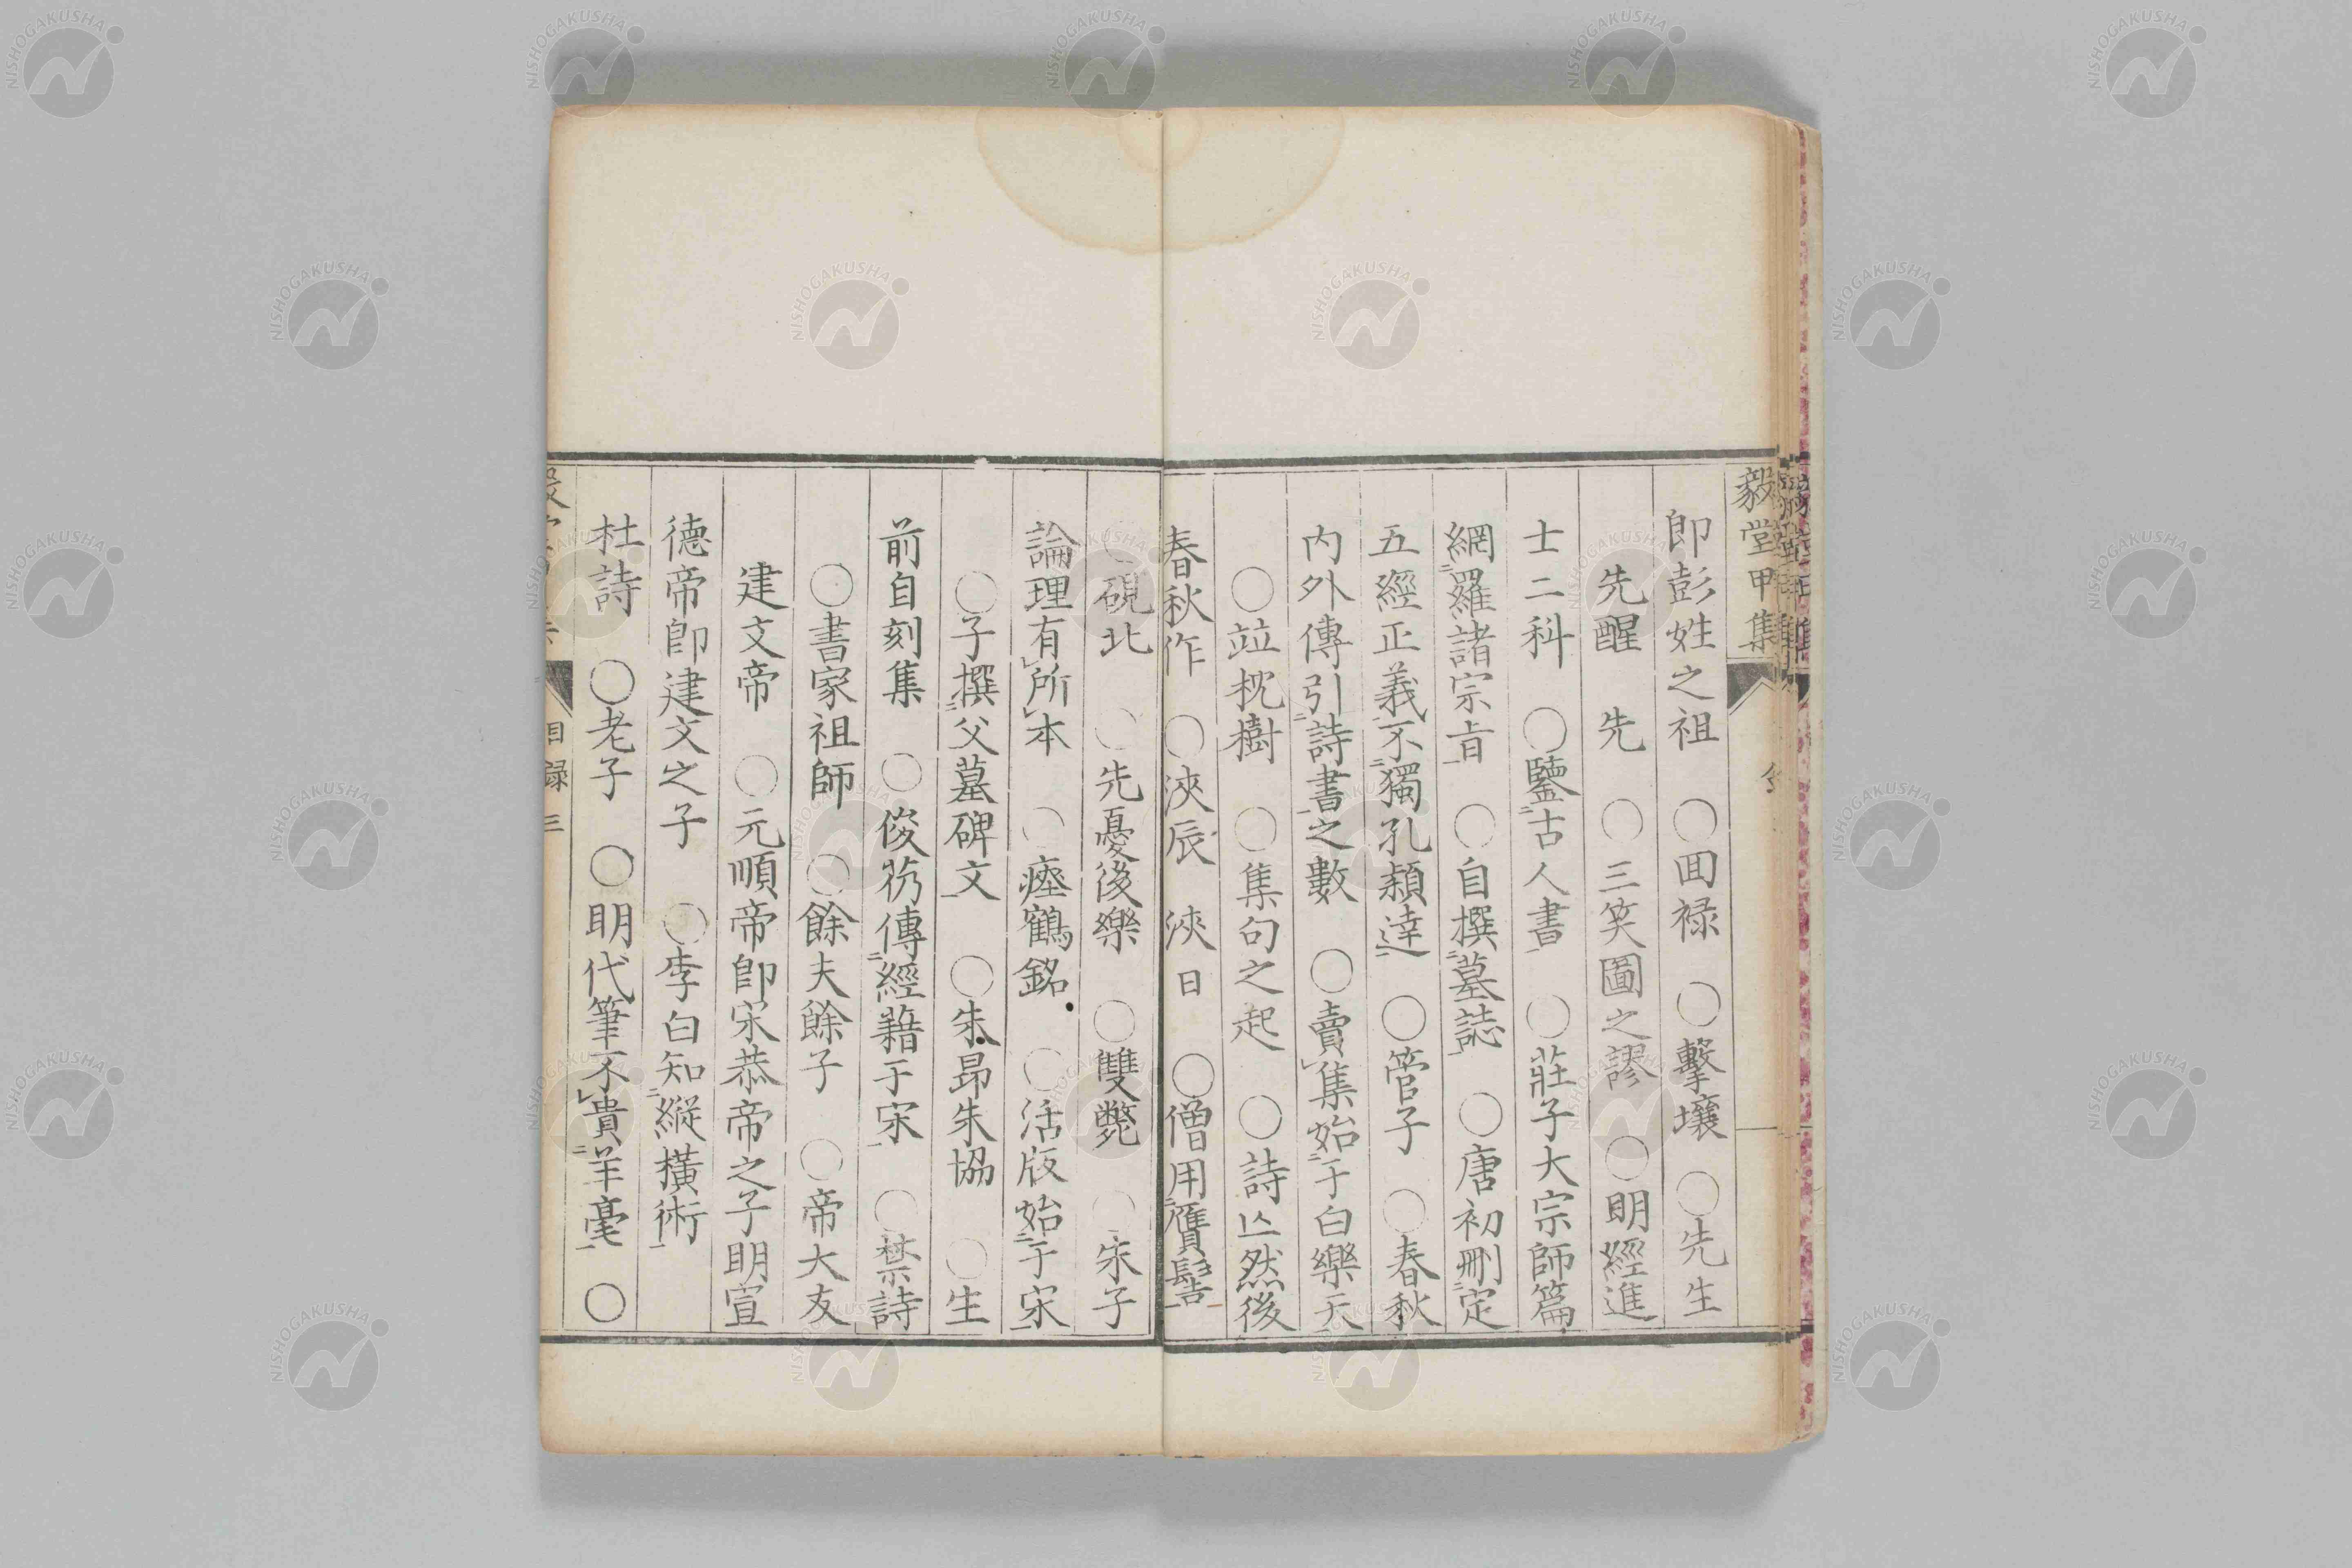 毅堂甲集
即彭姓之祖　○回祿　○擊壤　○先生
先醒　先　○三笑圖之謬　○明經進
士二科　○鑒古人書　○莊子大宗師篇
網羅諸宗旨　○自撰墓誌　○唐初刪定
五經正義不獨孔穎達　○管子　○春秋
內外傳引詩書之數　○賣集始于白樂天
○竝枕樹　○集句之起　○詩亾然後
春秋作　○浹辰　浹日　○僧用贋髻
○硯北　○先憂後樂　○雙斃　○宋子
論理有所本　○瘞鶴銘　○活版始于宋
○子撰父墓碑文　○朱昂朱協　○生
前自刻集　○俊芿傳經藉于宋　○禁詩
○書家祖師　○餘夫餘子　○帝大友
建文帝　○元順帝即宋恭帝之子明宣
德帝即建文之子　○李白知縱橫術
杜詩　○老子　○明代筆不貴羊毫　○
目録 三
NISHOGAKUSHA